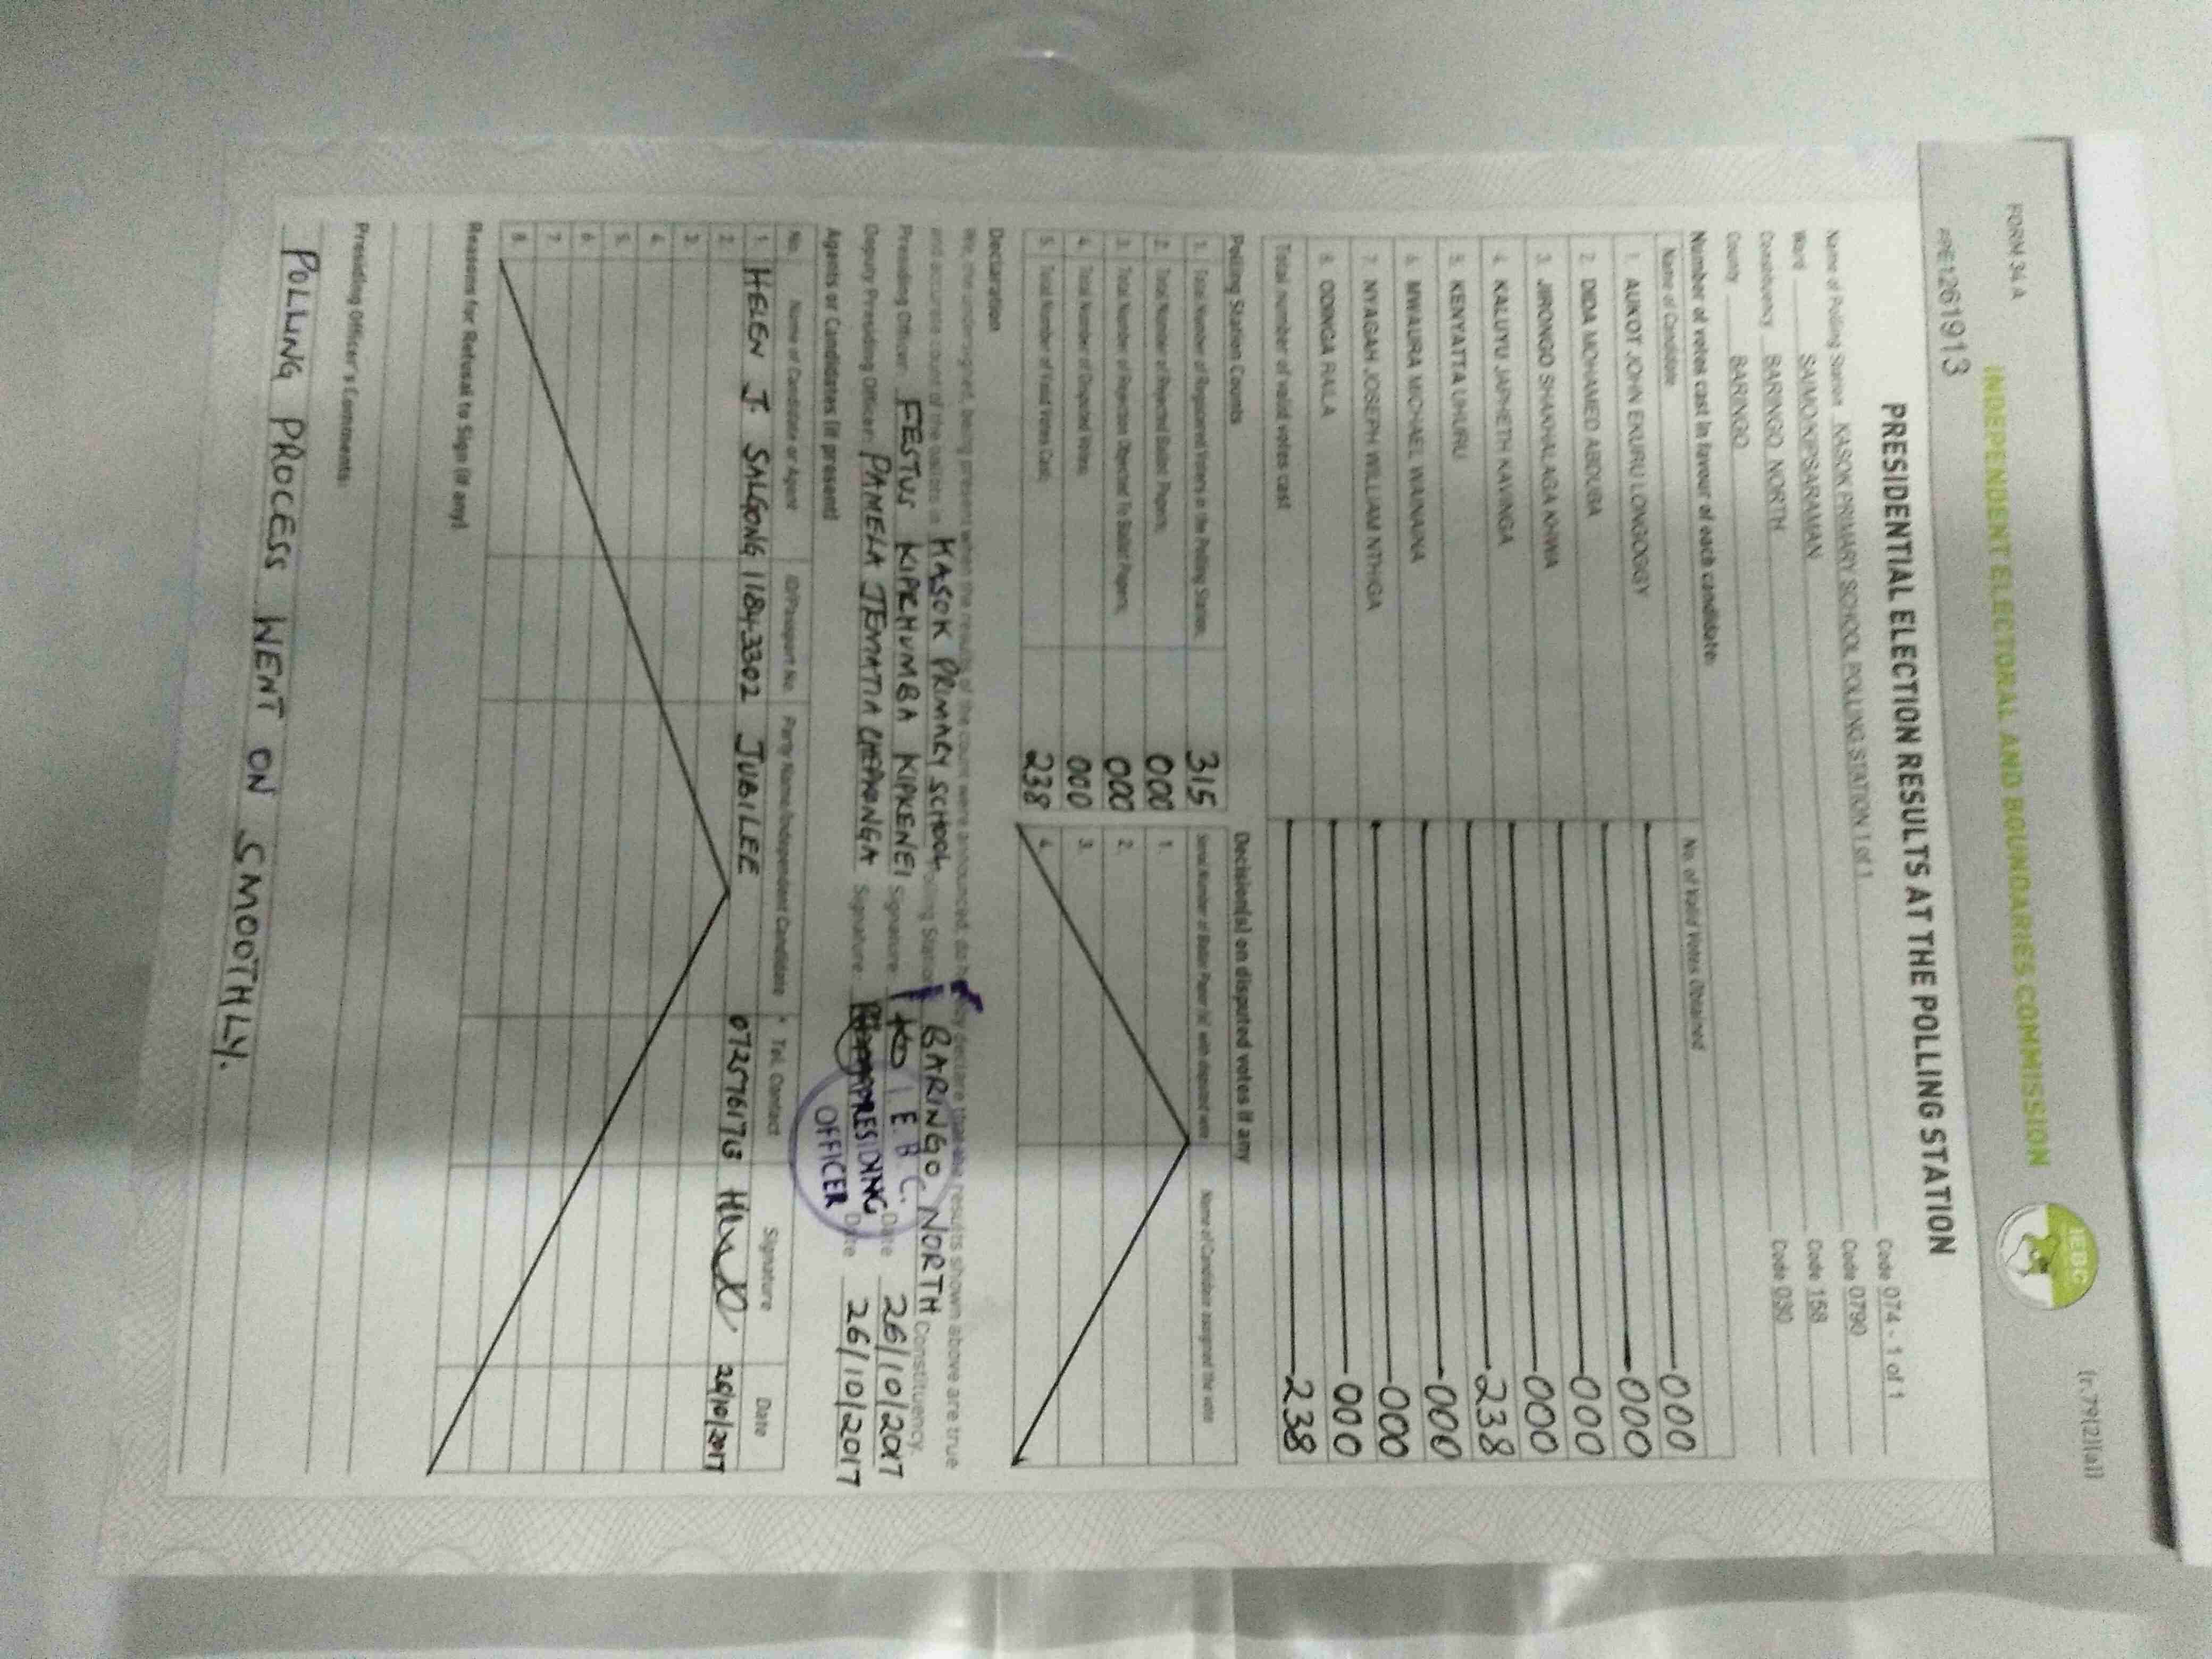 FORM 34 A
(r.79(2)(a))
INDEPENDENT ELECTORAL AND BOUNDARIES COMMISSION
IEBC
PPE1261913
PRESIDENTIAL ELECTION RESULTS AT THE POLLING STATION
Name of Polling Station KASOK PRIMARY SCHOOL POLLING STATION 1 of 1 Code 074 - 1 of 1
Ward SAIMO/KIPSARAMAN Code 0790
Constituency BARINGO NORTH Code 158
County BARINGO Code 030
Number of votes cast in favour of each candidate:
Name of Candidate No. of Valid Votes Obtained
1. AUKOT JOHN EKURU LONGOGGY 000
2. DIDA MOHAMED ABDUBA 000
3. JIRONGO SHAKHALAGA KHWA 000
4. KALUYU JAPHETH KAVINGA 000
5. KENYATTA UHURU 238
6. MWAURA MICHAEL WAINAINA 000
7. NYAGAH JOSEPH WILLIAM NTHIGA 000
8. ODINGA RAILA 000
Total number of valid votes cast 238
Polling Station Counts
1. Total Number of Registered Voters in the Polling Station; 315
2. Total Number of Rejected Ballot Papers; 000
3. Total Number of Rejection Objected To Ballot Papers; 000
4. Total Number of Disputed Votes; 000
5. Total Number of Valid Votes Cast; 238
Decision(s) on disputed votes if any
Serial Number of Ballot Paper (s) with disputed vote Name of Candidate assigned the vote
1.
2.
3.
4.
Declaration
We, the undersigned, being present when the results of the count were announced, do hereby declare that the results shown above are true
and accurate count of the ballots in KASOK PRIMARY SCHOOL Polling Station BARINGO NORTH Constituency.
Presiding Officer: FESTUS KIPCHUMBA KIPKENEI Signature Date 26/10/2017
Deputy Presiding Officer: PAMELA Signature Date 26/10/2017
I.E.B.C.
PRESIDING
OFFICER
Agents or Candidates (if present)
No. Name of Candidate or Agent ID/Passport No. Party Name/Independent Candidate Tel. Contact Signature Date
1. HELEN J. SALGONG 11843302 JUBILEE 26/10/2017
2.
3.
4.
5.
6.
7.
8.
Reasons for Refusal to Sign (if any)
Presiding Officer's Comments:
POLLING PROCESS WENT ON SMOOTHLY.